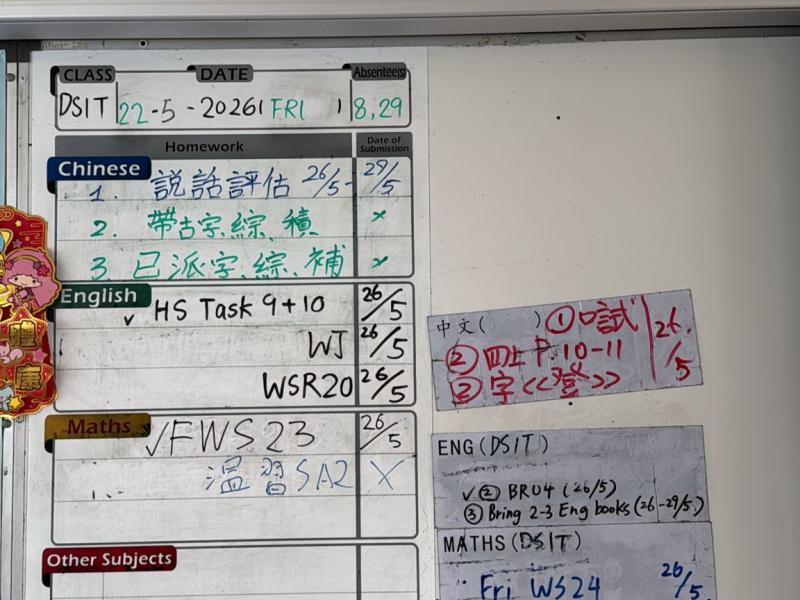 CLASS DATE Absentee(s)
DSIT 22-5-2026 FRI 8,29
Homework Date of Submission
Chinese
1. 說話評估 26/5- 29/5
2. 帶古字、綜、積 ×
3. 已派字、綜、補 ×
English
✓ HS Task 9+10 26/5
WJ 26/5
WSR20 26/5
Maths
✓FWS23 26/5
溫習SA2 X
Other Subjects
中文( ) ①口試 26/5
② 四上 P.10-11
② 字<<登>>
ENG (DSIT)
✓② BR04 (26/5)
③ Bring 2-3 Eng books (26-29/5)
MATHS (DSIT)
Fri WS24 26/5
健康